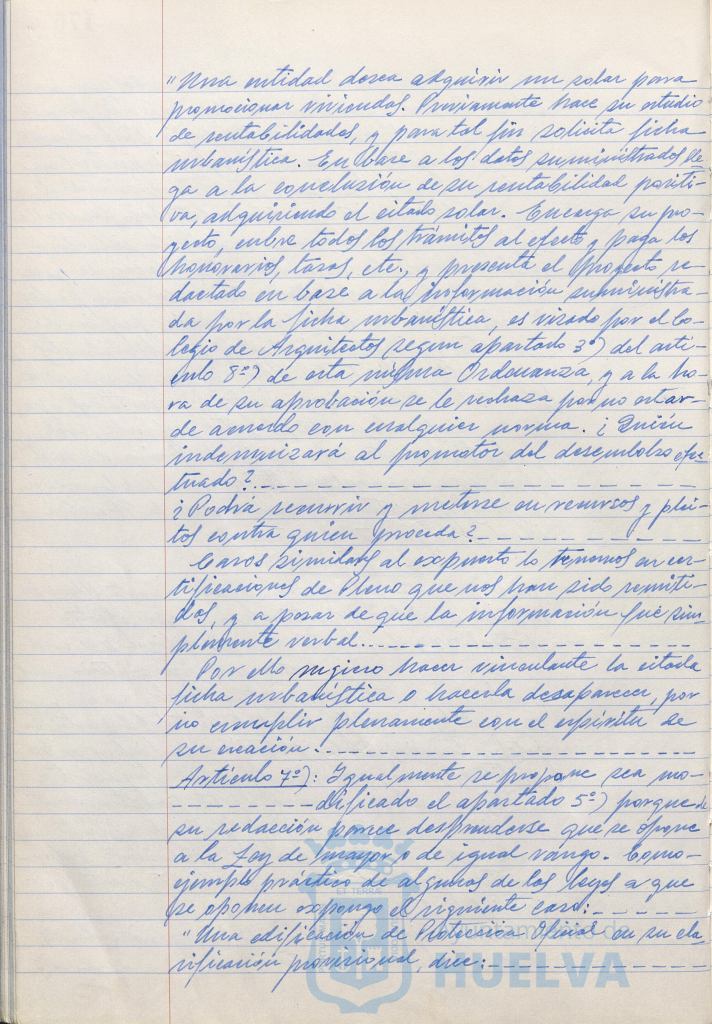 "Una entidad desea adquirir un solar para
promocionar viviendas. Previamente hace su estudio
de rentabilidades, y para tal fin solicita ficha
urbanística. En base a los datos suministrados lle-
ga a la conclusión de su rentabilidad positi-
va, adquiriendo el citado solar. Encarga su pro-
yecto, cubre todos los trámites al efecto y paga los
honorarios, tasas, etc., y presenta el Proyecto re-
dactado en base a la información suministra-
da por la ficha urbanística, es visado por el Co-
legio de Arquitectos según apartado 3º) del artí-
culo 8º) de esta misma Ordenanza, y a la ho-
ra de su aprobación se le rechaza por no estar
de acuerdo con cualquier norma. ¿Quién
indemnizará al promotor del desembolso efec-
tuado?
¿Podrá recurrir y meterse en recursos y plei-
tos contra quien proceda?
Casos similares al expuesto lo tenemos en cer-
tificaciones de Pleno que nos han sido remiti-
dos, y a pesar de que la información fué sim-
plemente verbal...
Por ello sugiero hacer vinculante la citada
ficha urbanística o hacerla desaparecer, por
no cumplir plenamente con el espíritu de
su creación.
Artículo 7º): Igualmente se propone sea mo-
dificado el apartado 5º) porque de
su redacción parece desprenderse que se opone
a la Ley de mayor o de igual rango. Como-
ejemplo práctico de algunos de los leyes a que
se oponen expongo el siguiente caso:
"Una edificación de Protección Oficial en su cla-
sificación provisional, dice:
HUELVA